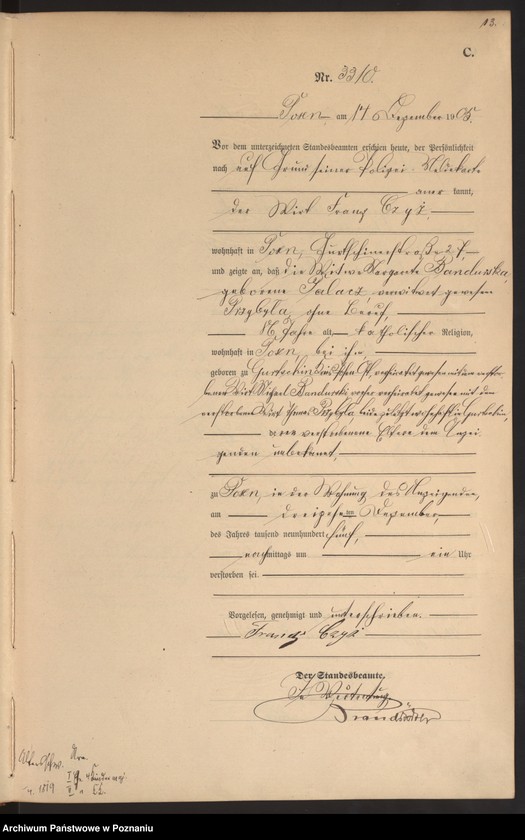 13.
C.
Nr. 3310.
Posen, am 14 Dezember 1905.
Vor dem unterzeichneten Standesbeamten erschien heute, der Persönlichkeit
nach auf Grund seiner Polizei-Meldekarte
anerkannt,
der Wirt Franz Czyż
wohnhaft in Posen, Gurtschinerstraße 27
und zeigte an, daß die Witwe Margarete Bandurska,
geborene Palacz, verwitwet gewesene
Przybyla, ohne Beruf,
Jahre alt, katholischer Religion,
wohnhaft in Posen, bei ihm,
geboren zu Gurtschin Kreis Posen Ost, verheiratet gewesen mit dem verstor-
benen Wirt Michael Bandurski, vorher verheiratet gewesen mit dem
verstorbenen Wirt Thomas Przybyla, beide zuletzt wohnhaft in Gurtschin,
deren verstorbene Eltern dem Anzei-
genden unbekannt,
zu Posen, in der Wohnung des Anzeigenden,
am dreizehnten Dezember,
des Jahres tausend neunhundert fünf,
nachmittags um ein Uhr
verstorben sei.
Vorgelesen, genehmigt und unterschrieben.
Franz Czyż
Der Standesbeamte.
In Vertretung
Archiwum Państwowe w Poznaniu